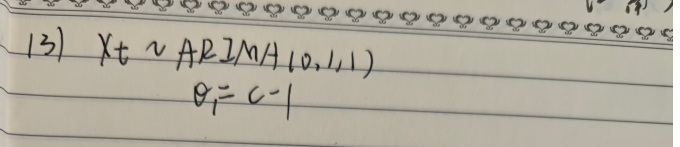 13) Xt ~ ARIMA(0,1,1)
θ₁= c-1